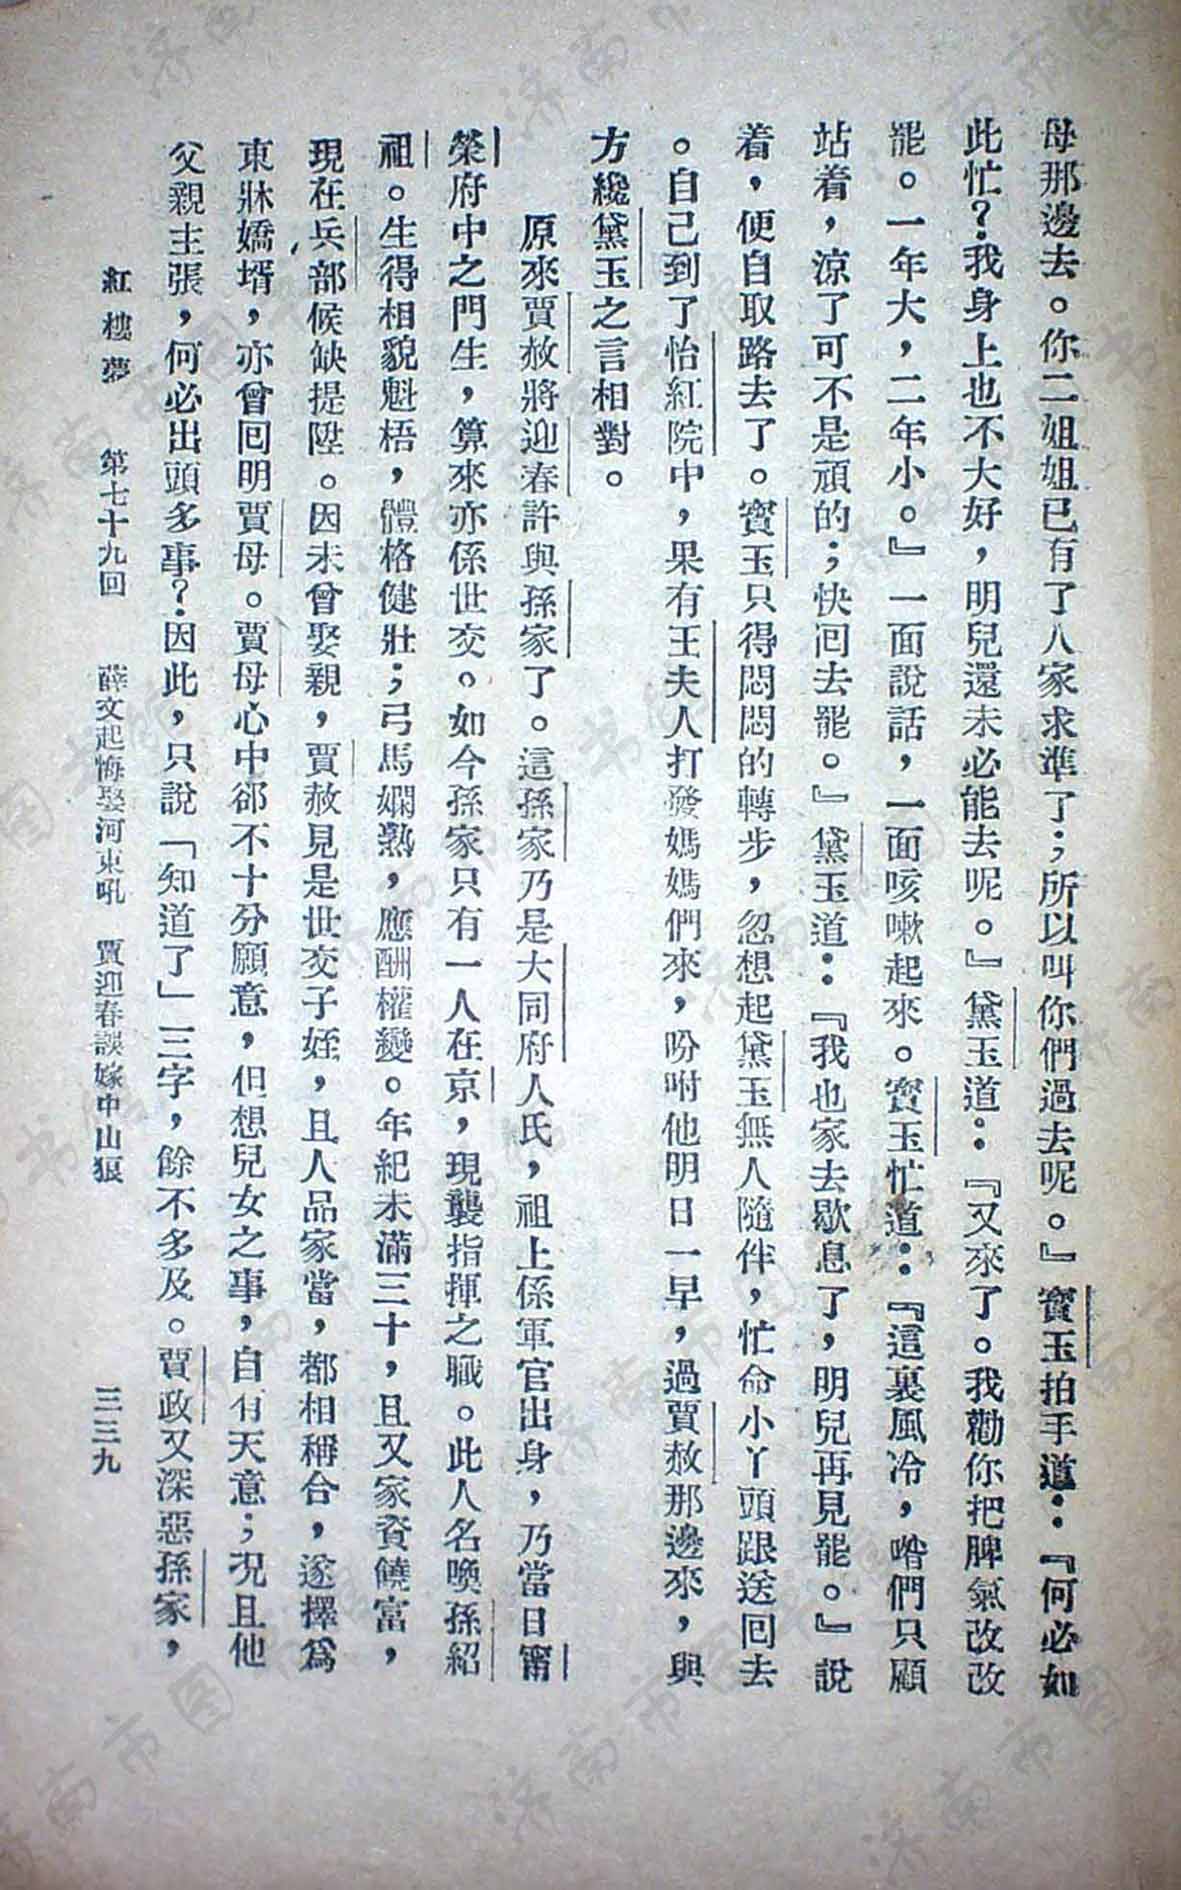 母那邊去。你二姐姐已有了人家求準了；所以叫你們過去呢。』寶玉拍手道：『何必如
此忙？我身上也不大好，明兒還未必能去呢。』黛玉道：『又來了。我勸你把脾氣改改
罷。一年大，二年小。』一面說話，一面咳嗽起來。寶玉忙道：『這裏風冷，喒們只顧
站着，涼了可不是頑的；快囘去罷。』黛玉道：『我也家去歇息了，明兒再見罷。』說
着，便自取路去了。寶玉只得悶悶的轉步，忽想起黛玉無人隨伴，忙命小丫頭跟送囘去
。自己到了怡紅院中，果有王夫人打發媽媽們來，吩咐他明日一早，過賈赦那邊來，與
方纔黛玉之言相對。
原來賈赦將迎春許與孫家了。這孫家乃是大同府人氏，祖上係軍官出身，乃當日甯
榮府中之門生，算來亦係世交。如今孫家只有一人在京，現襲指揮之職。此人名喚孫紹
祖。生得相貌魁梧，體格健壯；弓馬嫻熟，應酬權變。年紀未滿三十，且又家資饒富，
現在兵部候缺提陞。因未曾娶親，賈赦見是世交子姪，且人品家當，都相稱合，遂擇爲
東牀嬌壻，亦曾囘明賈母。賈母心中郤不十分願意，但想兒女之事，自有天意；况且他
父親主張，何必出頭多事？因此，只說「知道了」三字，餘不多及。賈政又深惡孫家，
紅樓夢 第七十九囘 薛文起悔娶河東吼 賈迎春誤嫁中山狼 三三九
济南市图书馆